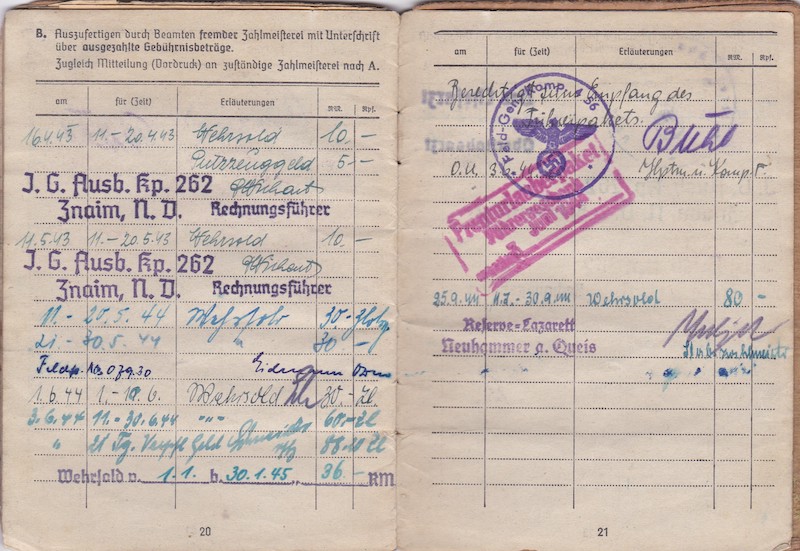 B. Auszufertigen durch Beamten fremder Zahlmeisterei mit Unterschrift
über ausgezahlte Gebührnisbeträge.
Zugleich Mitteilung (Vordruck) an zuständige Zahlmeisterei nach A.
am für (Zeit) Erläuterungen RM. Rpf.
16.4.43 11.-20.4.43 Wehrsold 10.-
Putzzeuggeld 5.-
J. G. Ausb. Kp. 262
Znaim, N. D. Rechnungsführer
11.5.43 11.-20.5.43 Wehrsold 10.-
J. G. Ausb. Kp. 262
Znaim, N. D. Rechnungsführer
11.-20.5.44 Wehrsold 30.-
21.-30.5.44 " 30.-
Feldp. No 07930
1.6.44 1.-10.6. Wehrsold 30.- Zl
3.6.44 11.-30.6.44 "" 60.- Zl
" 21 Tg. Verpfl Geld Zl
Wehrsold v. 1.1. b. 30.1.45 36.- RM
20
am für (Zeit) Erläuterungen RM. Rpf.
Berechtigt zum Empfang des
Führerpakets.
Feld-Gend. Komp.
O.U.
Hptm. u. Komp.
25.9.44 - 30.9.44 Wehrsold 80 -
Reserve-Lazarett
Neuhammer a. Queis
Stabszahlmeister
21